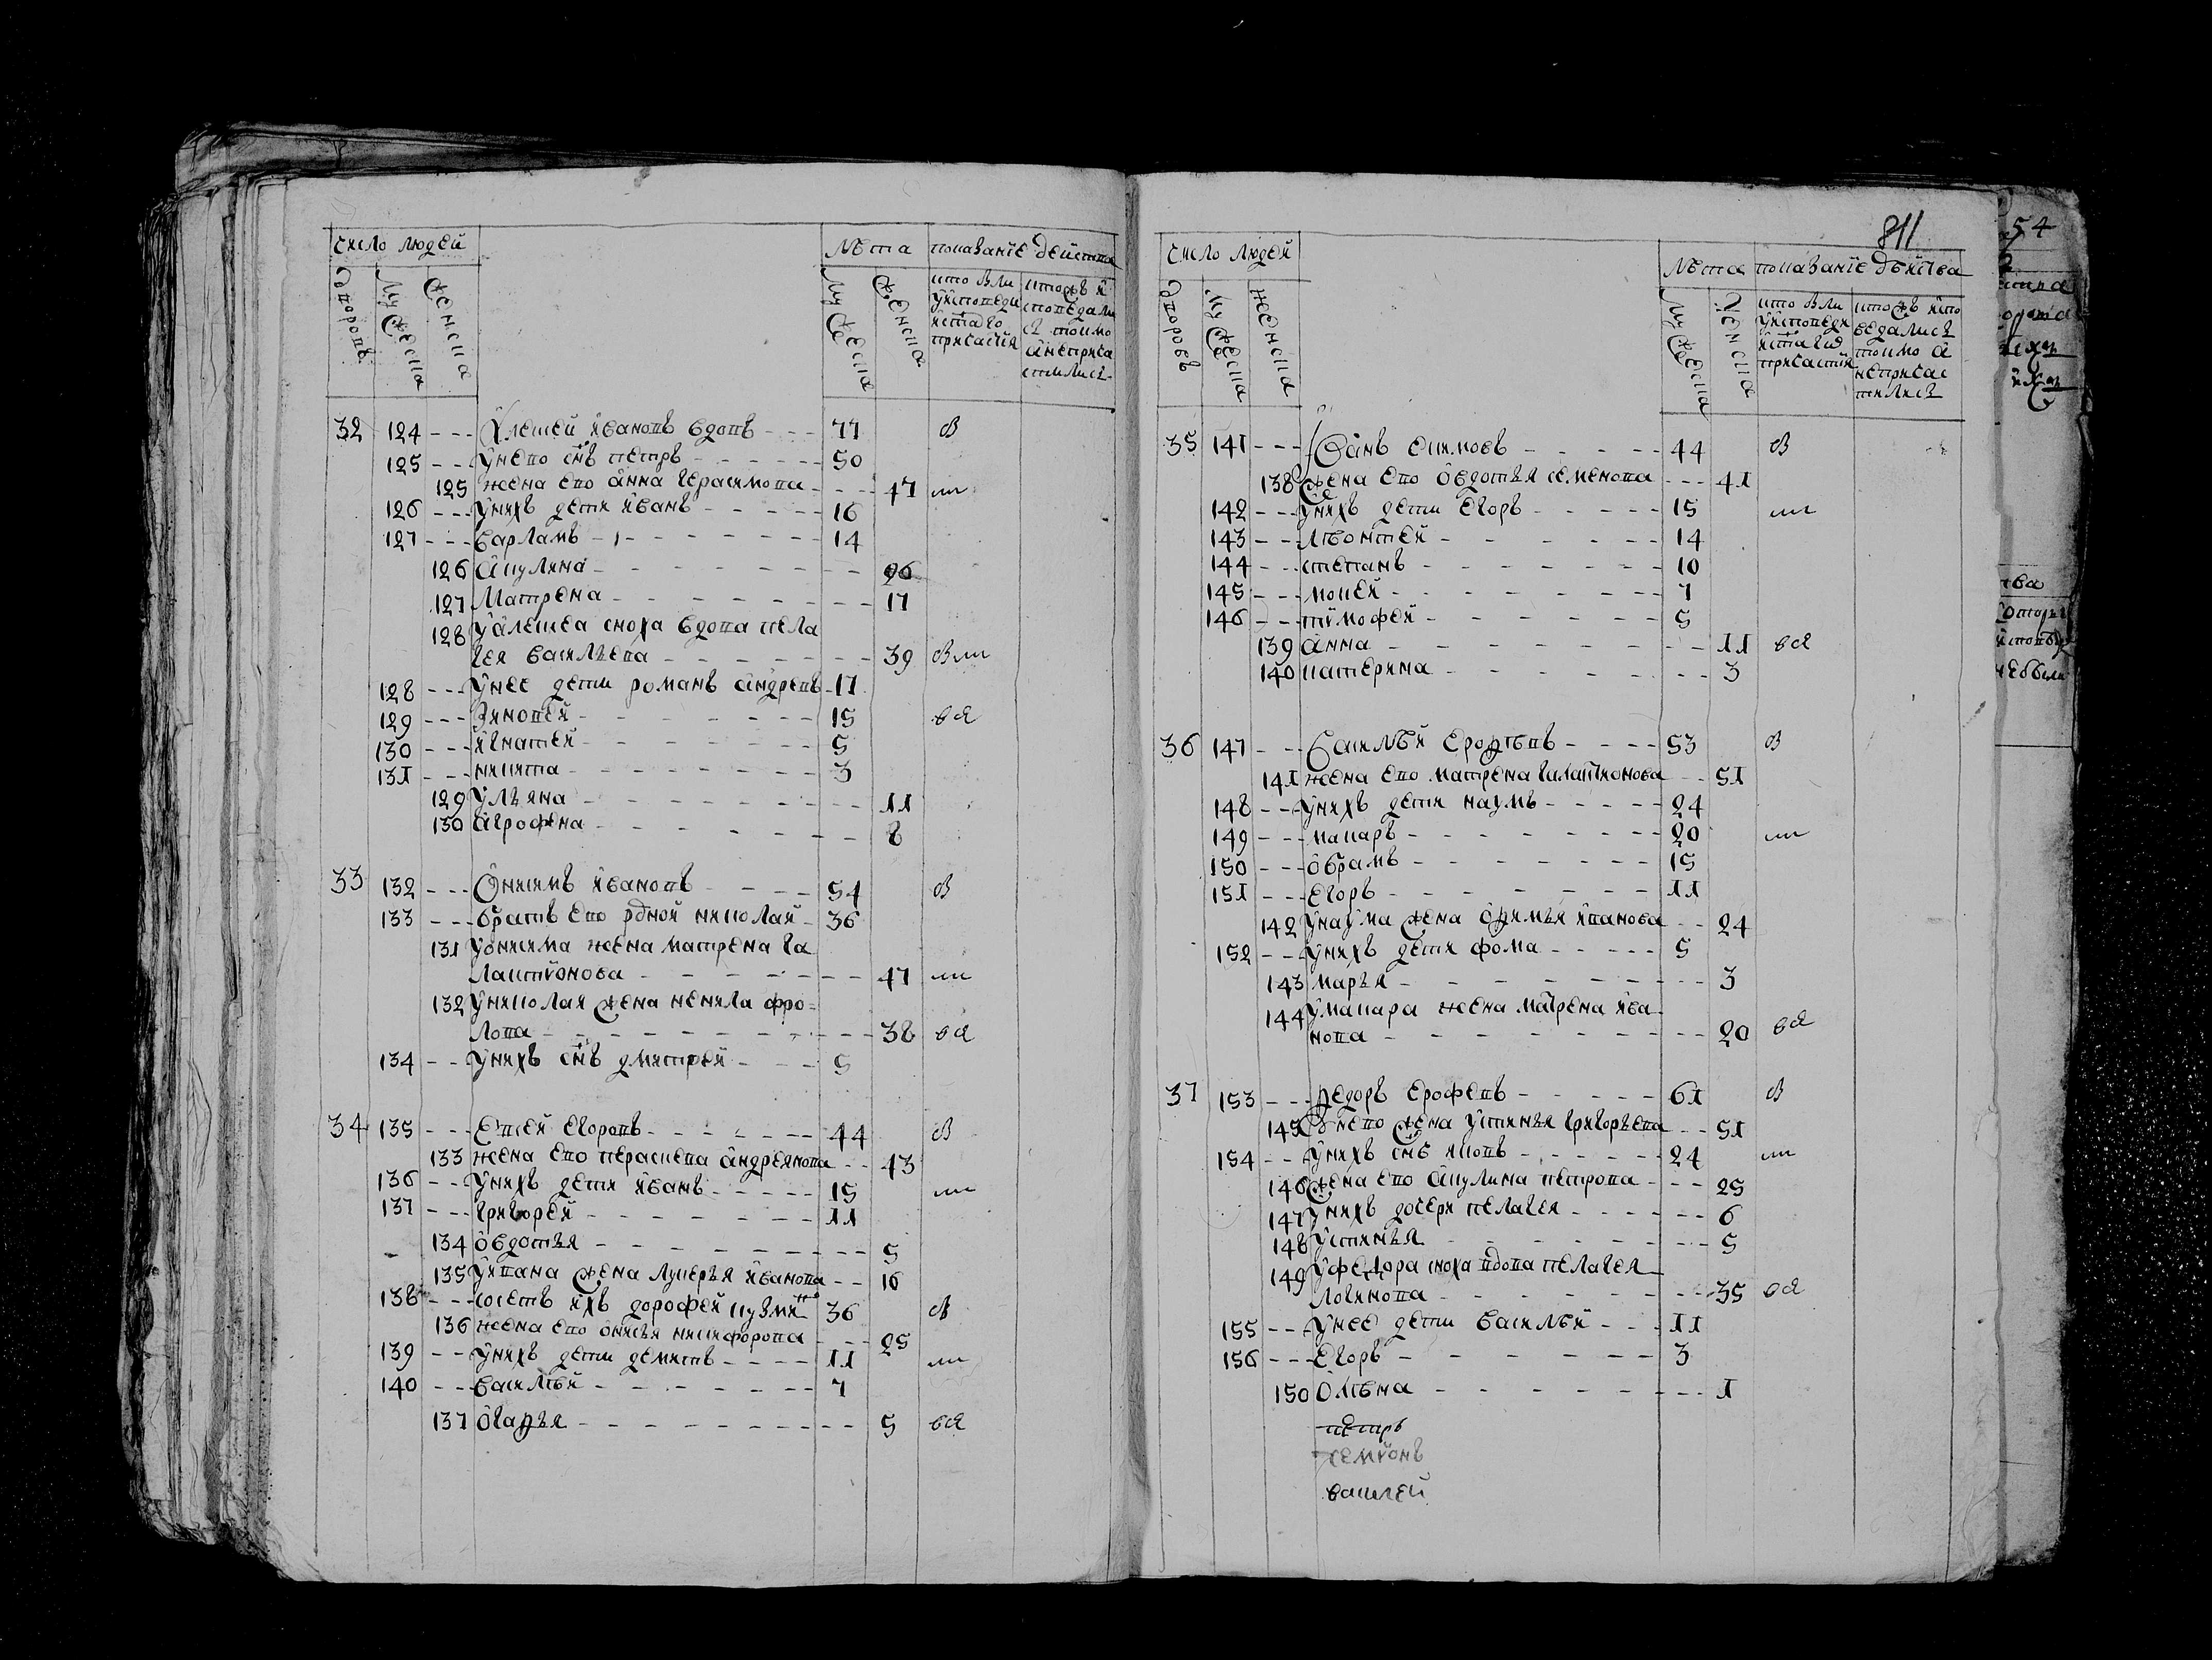 число людей
Лѣта показанїе действа
дворовъ
мужеска
женска
мужеска
женска
кто были
у исповеди
и с̃таго
причастия
кто ж и
споведали
сь токмо
а неприча
стились
32 124 --- Алексей Ивановъ вдовъ --- 77 в
125 --- у него снъ петръ --- 50
125 жена ево анна герасимова --- 47 ли
126 --- у нихъ дети иванъ --- 16
127 --- варламъ --- 14
126 акулина --- 26
127 Матрена --- 17
128 у алексея сноха вдова пела
гея василъева --- 39 в ли
128 --- у нее дети романъ андреевъ - 17
129 --- Зиновей --- 15 ся
130 --- игнатей --- 5
131 --- никита --- 3
129 улъяна --- 11
130 агрофена --- 8
33 132 --- Онисимъ ивановъ --- 54 в
133 --- братъ ево рдной николай - 36
131 у онисима жена матрена га
лактионова --- 47 ли
132 у николая жена ненила фро=
лова --- 38 ся
134 --- у нихъ снъ дмитрей --- 5
34 135 --- Евсей егоровъ --- 44 в
133 жена ево параскева андреянова -- 43
136 -- у нихъ дети иванъ --- 15 ли
137 --- григорей --- 11
134 овдотья --- 5
135 у ивана жена лукерья иванова -- 16
138 --- соседъ ихъ дорофей кузми 36 в
136 жена ево онисья никифорова --- 25
139 -- у нихъ дети дементъ --- 11 ли
140 -- василей --- 7
137 огафья --- 5 ся
811
число людей
Лѣта показанїе дѣйства
дворовъ
мужеска
женска
мужеска
женска
кто были
у исповеди
и стаго
причастия
кто ж испо
ведались
токмо а
не причас
тились
35 141 --- Иванъ екимовъ --- 44 в
138 жена ево овдотья семенова --- 41
142 --- у нихъ дети егоръ --- 15 ли
143 --- леонтей --- 14
144 --- степанъ --- 10
145 --- мокей --- 7
146 --- тимофей --- 5
139 анна --- 11 ся
140 катерина --- 3
36 147 --- василей ерофѣевъ --- 53 в
141 жена ево матрена галактионова -- 51
148 --- у нихъ дети наумъ --- 24
149 --- макаръ --- 20 ли
150 --- обрамъ --- 15
151 --- егоръ --- 11
142 у наума жена офимья иванова -- 24
152 --- у нихъ дети фома --- 5
143 марья --- 3
144 у макара жена матрена ива
нова --- 20 ся
37 153 --- федоръ ерофеевъ --- 61 в
145 у него жена устинья григоръева -- 51
154 --- у нихъ снъ яковъ --- 24 ли
146 жена ево акулина петрова --- 25
147 у нихъ дочери пелагея --- 6
148 устинья --- 5
149 у федора сноха вдова пелагея
логинова --- 35 ся
155 -- у нее дети василей --- 11
156 --- егоръ --- 3
150 олѣна --- 1
петръ
семионъ
василей
54